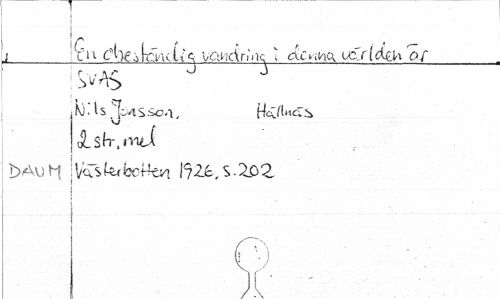 En obeständig vandring i denna världen är
SVAS
Nils Jonsson. Hällnäs
2 str, mel
DAUM Västerbotten 1926, s. 202